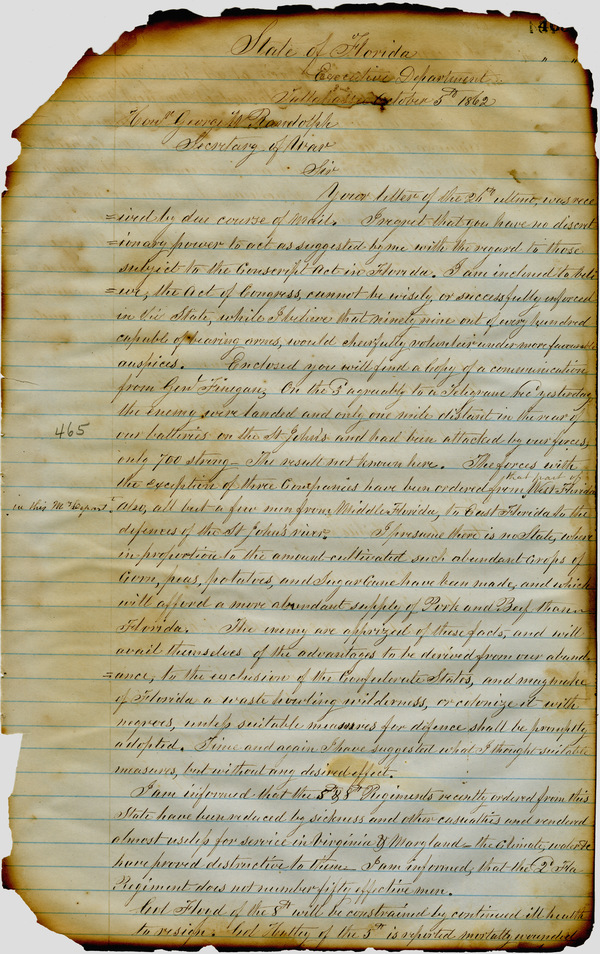 State of Florida
Executive Department
Tallahassee October 5th 1862
Honle George W Randolph
Secretary of War
Sir
Your letter of the 26th ultimo, was rece
=ived by due course of Mail. I regret that you have no discret
=ionary power to act as suggested by me with the regard to those
subject to the Conscript Act in Florida. I am inclined to beli
=eve, the Act of Congress, cannot be wisely, or successfully enforced
in this State, while I believe that ninety nine out of every hundred
capable of bearing arms, would cheerfully volunteer under more favorable
auspices. Enclosed you will find a copy of a communication
from Genl Finegan, On the 3d agreeably to a Telegram recd yesterday
the enemy were landed and only one mile distant in the rear of
465
our batteries on the St John's and had been attacked by our forces,
only 700 strong – The result not known here. The forces with
that part of
the exception of three Companies have been ordered from West Florida
in this Mil Depart
Also, all but a few men from Middle Florida, to East Florida to the
defences of the St Johns river. I presume there is no State, where
in proportion to the amount cultivated such abundant crops of
Corn, peas, potatoes, and Sugar Cane have been made, and which
will afford a more abundant supply of Pork and Beef than
Florida. The enemy are apprized of these facts, and will
avail themselves of the advantages to be derived from our abund
=ance, to the exclusion of the Confederate States, and may make
of Florida a waste howling wilderness, or colonize it with
negroes, unless suitable measures for defence shall be promptly
adopted. Time and again I have suggested what I thought suitable
measures, but without any desired effect.
I am informed that the 5 & 8th Regiments recently ordered from this
State have been reduced by sickness and other casualties and rendered
almost useless for service in Virginia & Maryland – the climate, water &c
have proved destructive to them – I am informed, that the 2d Fla
Regiment does not number fifty effective men.
Col Floyd of the 8th will be constrained by continued ill health
to resign. Col Hatley of the 5th is reported mortally wounded